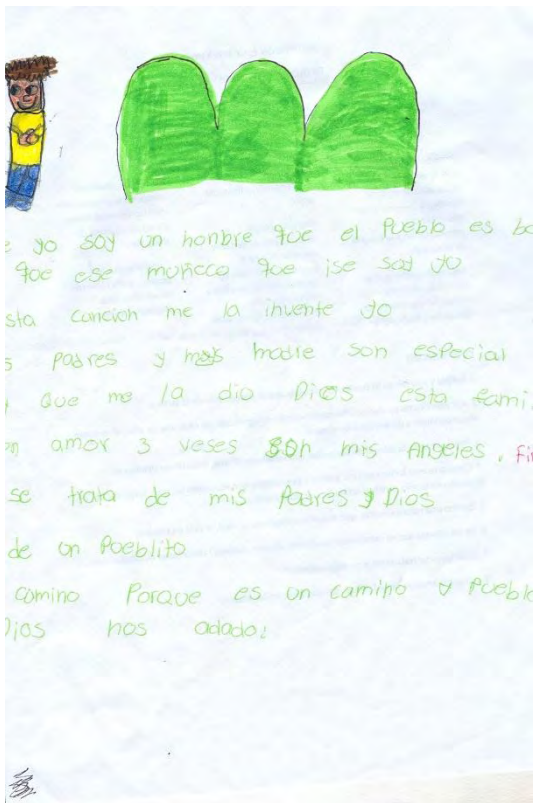 e yo soy un honbre que el Pueblo es bo
que ese muñeco que ise soy yo
sta cancion me la invente yo
s Padres y madre son especial
que me la dio Dios esta fami
amor 3 veses son mis Angeles. Fin
se trata de mis Padres y Dios
de un Pueblito
camino Porque es un camino y Pueblo
Dios nos adado: